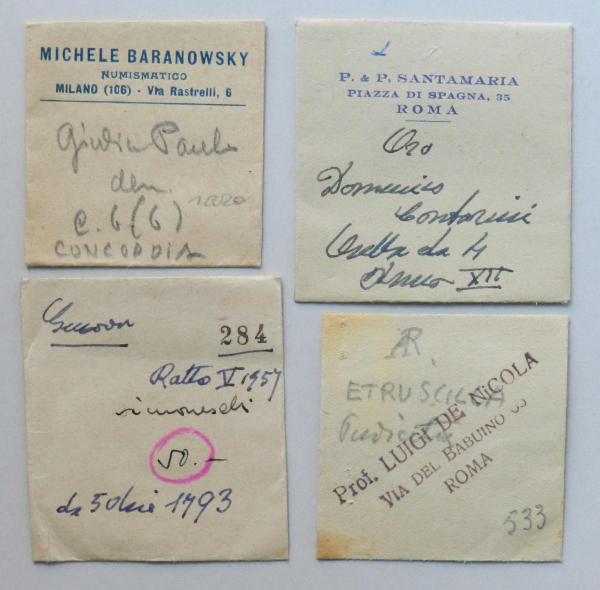 MICHELE BARANOWSKY
NUMISMATICO
MILANO (106) - Via Rastrelli, 6
Giulia Paula
den.
raro
C. 6 (6)
CONCORDIA
P. & P. SANTAMARIA
PIAZZA DI SPAGNA, 35
ROMA
Oro
Domenico
Contarini
da 4
Anno XII
Genova
284
Ratto V 1957
50.-
da 50 1793
AR
ETRUSCILLA
Pudicitia
Prof. LUIGI DE NICOLA
VIA DEL BABUINO 65
ROMA
533